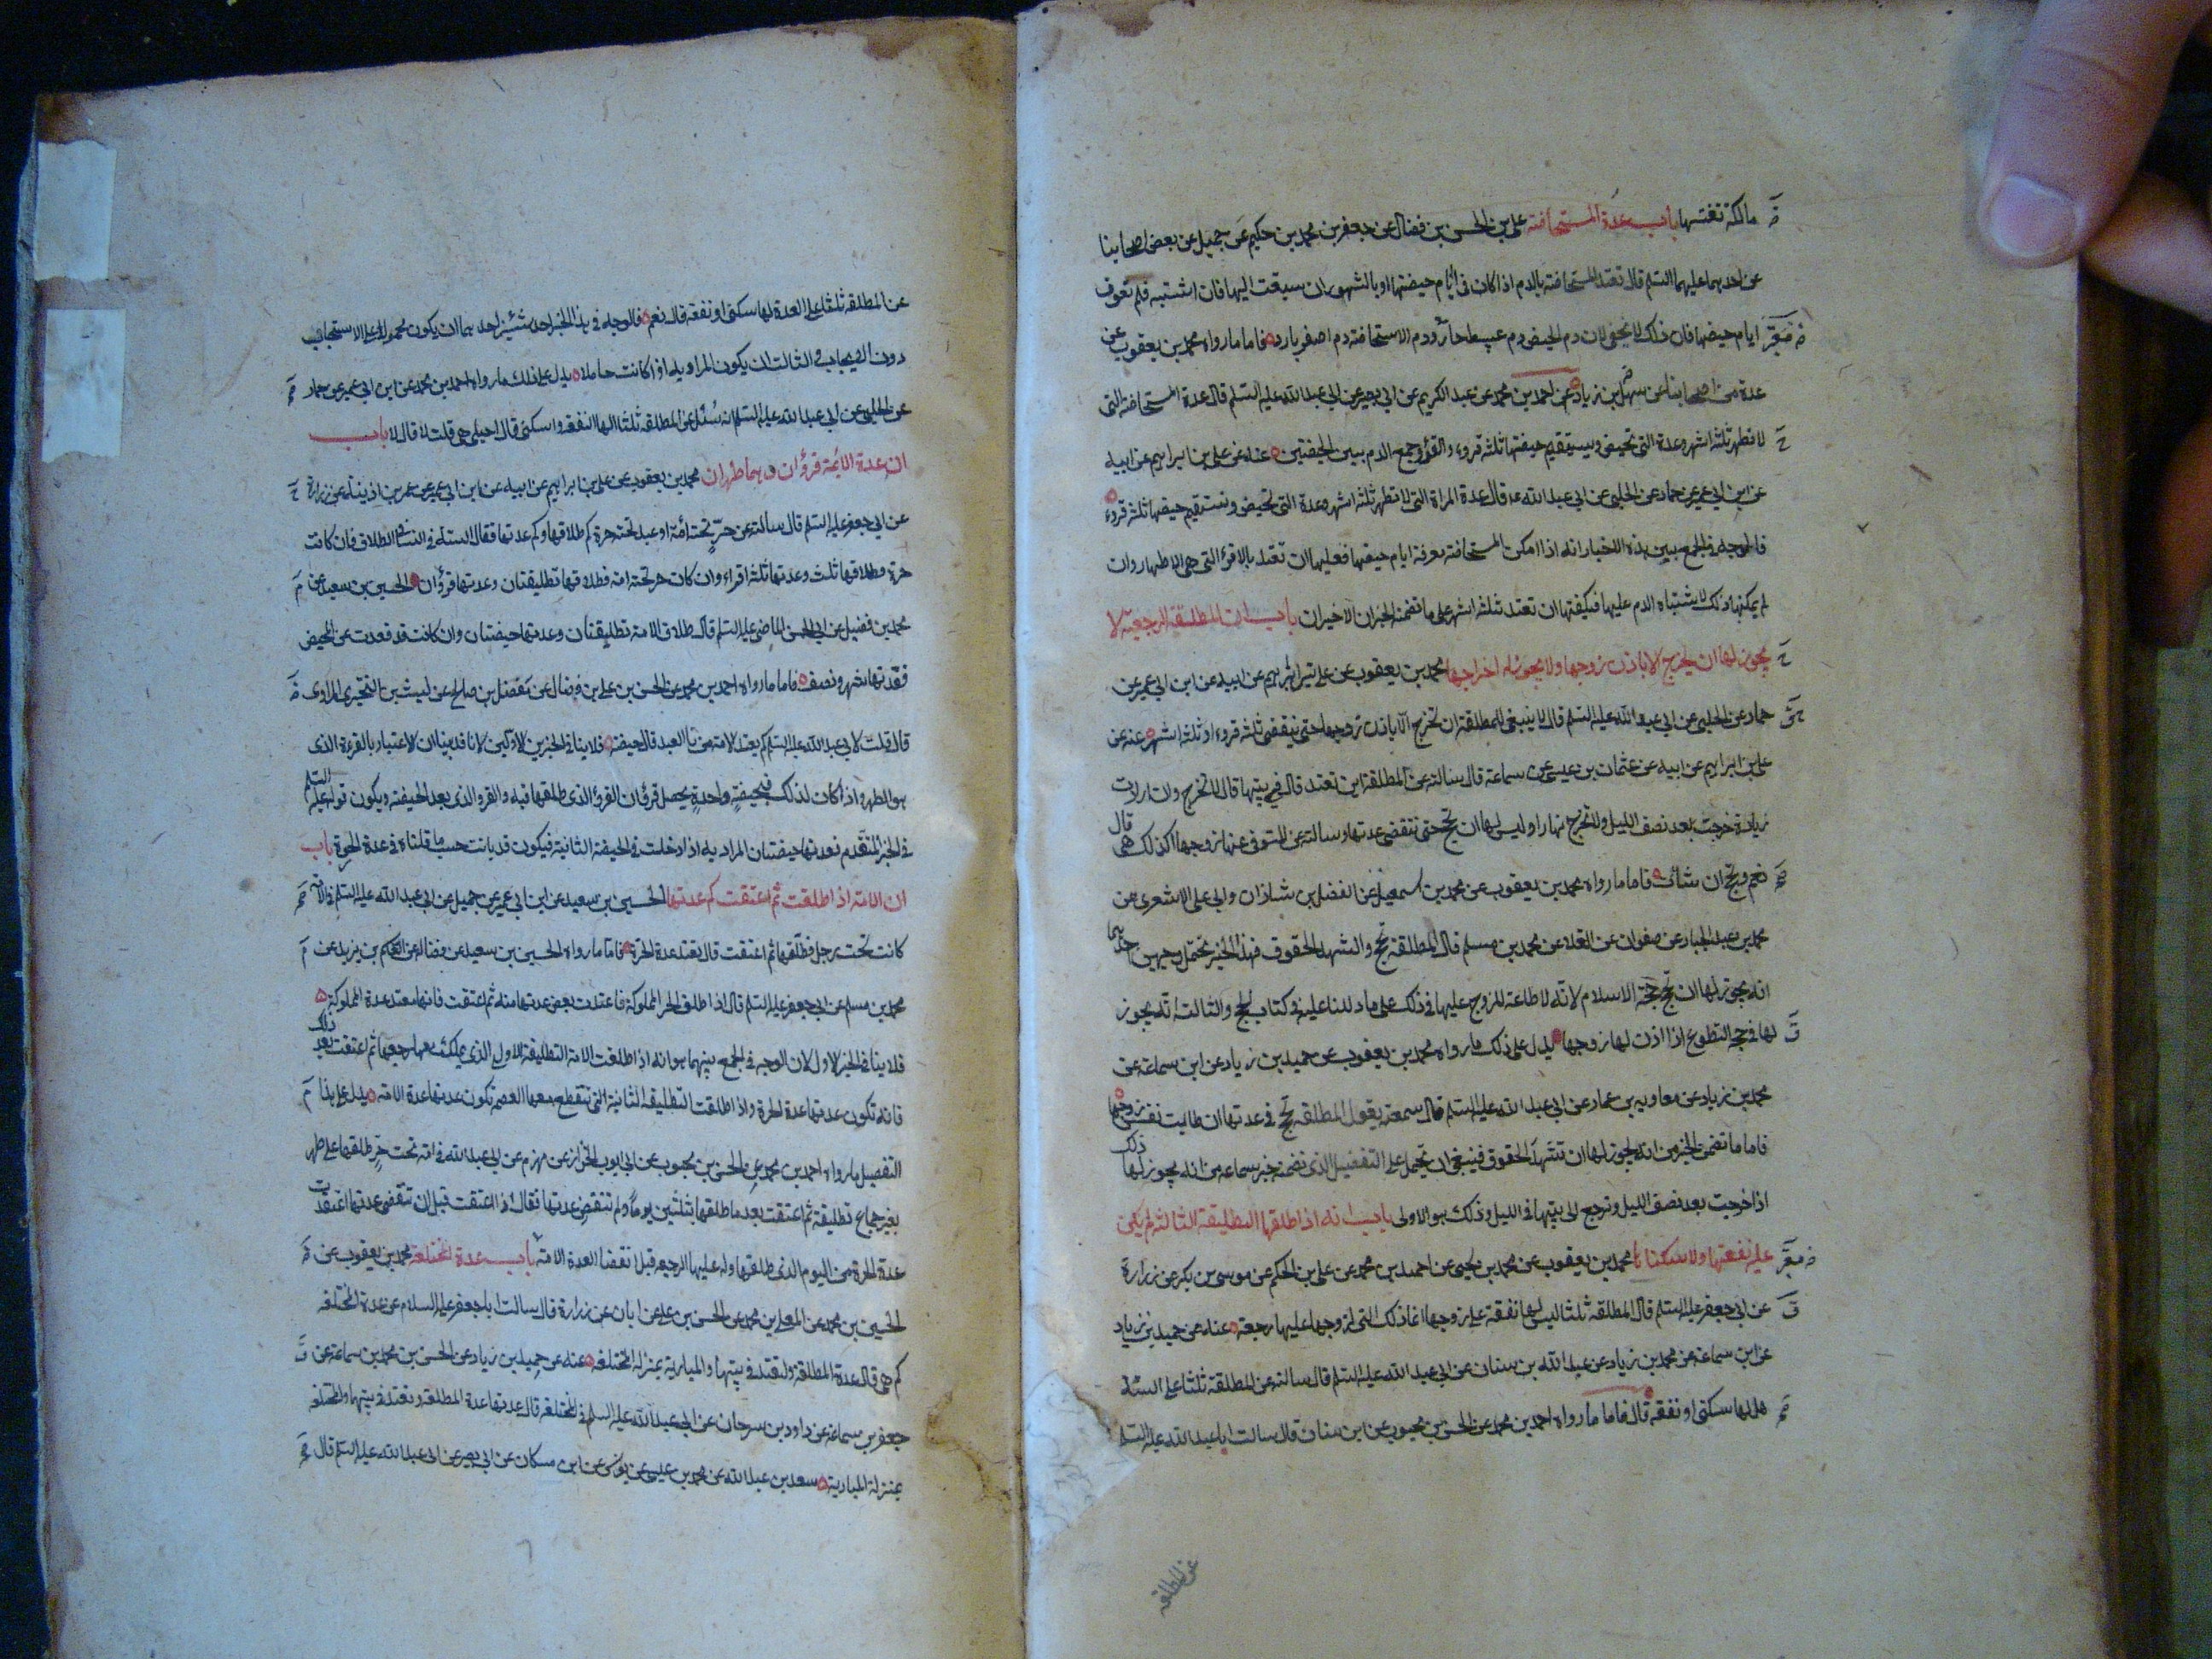 مالكة نفسها باب عدة المستحاضة علي بن الحسن بن فضال عن جعفر بن محمد بن حكيم عن جميل عن بعض اصحابنا
عن احدهما عليهما السلم قال تعتد المستحاضة بالدم اذا كان في ايام حيضتها او بالشهور ان سبقت اليها فان اشتبه فلم تعرف
ايام حيضها فان ذلك لا يخفى لان دم الحيض دم عبيط حار ودم الاستحاضة دم اصفر بارد فاما ما رواه محمد بن يعقوب عن
عدة من اصحابنا عن سهل بن زياد عن احمد بن محمد عن عبد الكريم عن ابي بصير عن ابي عبد الله عليه السلم قال عدة المستحاضة التي
لا تطهر ثلثة اشهر وعدة التي تحيض ويستقيم حيضتها ثلثة قروء والقرؤ جمع الدم بين الحيضتين عنه عن علي بن ابراهيم عن ابيه
عن ابن ابي عمير عن حماد عن الحلبي عن ابي عبد الله عه قال عدة المراة التي لا تطهر ثلثة اشهر وعدة التي تحيض وتستقيم حيضها ثلثة قروء
فالوجه في الجمع بين هذه الاخبار انه اذا امكن المستحاضة معرفة ايام حيضها فعليها ان تعتد بالاقرؤ التي هي الاطهار وان
لم يمكنها ذلك لاشتباه الدم عليها فيكفيها ان تعتد ثلثة اشهر على ما تضمنه الخبران الاخيران باب ان المطلقة الرجعية لا
يجوز لها ان يخرج الا باذن زوجها ولا يجوز له اخراجها محمد بن يعقوب عن علي بن ابراهيم عن ابيه عن ابن ابي عمير عن
حماد عن الحلبي عن ابي عبد الله عليه السلم قال لا ينبغي للمطلقة ان تخرج الا باذن زوجها حتى تنقضي ثلثة قروء او ثلثة اشهر عنه عن
علي بن ابراهيم عن ابيه عن عثمان بن عيسى عن سماعة قال سالته عن المطلقة اين تعتد قال في بيتها قال لا تخرج وان ارادت
زيادة خرجت بعد نصف الليل ولا تخرج نهارا وليس لها ان تحج حتى تنقضي عدتها وسالته عن المتوفى عنها زوجها اكذلك هي قال
نعم وتحج ان شائت فاما ما رواه محمد بن يعقوب عن محمد بن اسمعيل عن الفضل بن شاذان وابي علي الاشعري عن
محمد بن عبد الجبار عن صفوان عن العلا عن محمد بن مسلم قال المطلقة تحج والشهد الحقوق فهذا الخبر تحتمل وجهين احدهما
انه يجوز لها ان تحج حجة الاسلام لانه لا طاعة للزوج عليها في ذلك على ما دللنا عليه في كتاب الحج والثالث انه يجوز
لها في حج التطوع اذا اذن لها زوجها يدل على ذلك ما رواه محمد بن يعقوب عن حميد بن زياد عن ابن سماعة عن
محمد بن زياد عن معاويه بن عمار عن ابي عبد الله عليه السلم قال سمعته يقول المطلقة تحج في عدتها ان طابت نفس زوجها
فاما ما تضمن الخبر من انه يجوز لها ان تشهد الحقوق فينبغي ان تحمل على التفصيل الذي تضمنه خبر سماعه من انه يجوز لها ذلك
اذا خرجت بعد نصف الليل وترجع الى بيتها في الليل وذلك هو الاولى باب انه اذا طلقها التطليقة الثالثة لم يكن
عليه نفقتها ولا سكناها محمد بن يعقوب عن محمد بن يحيى عن احمد بن محمد عن علي بن الحكم عن موسى بن بكر عن زرارة
عن ابي جعفر عليه السلم قال المطلقة ثلثا ليس لها نفقة على زوجها انما ذلك التي لزوجها عليها رجعة عنه عن حميد بن زياد
عن ابن سماعة عن محمد بن زياد عن عبد الله بن سنان عن ابي عبد الله عليه السلم قال سالته عن المطلقة ثلثا على السنة
هل لها سكنى او نفقة قال فاما ما رواه احمد بن محمد عن الحسن بن محبوب عن ابن سنان قال سالت ابا عبد الله عليه السلم
عن المطلقة
عن المطلقه ثلثا على العدة لها سكنى او نفقة قال نعم فالوجه في هذا الخبر احد شيئين احدهما ان يكون محمولا على الاستحباب
دون الايجاب والثالث ان يكون المراد به اذا كانت حاملا يدل على ذلك ما رواه احمد بن محمد عن ابن ابي عمير عن حماد
عن الحلبي عن ابي عبد الله عليه السلم انه سئل عن المطلقه ثلثا الها النفقه والسكنى قال احبلى هي قلت لا قال لا باب
ان عدة الائمة قرؤان وهما طهران محمد بن يعقوب عن علي بن ابراهيم عن ابيه عن ابن ابي عمير عن عمر بن اذينة عن زرارة
عن ابي جعفر عليه السلم قال سالته عن حر تحته امة او عبد تحته حرة كم طلاقها وكم عدتها فقال السنة في النساء في الطلاق فان كانت
حرة فطلاقها ثلث وعدتها ثلثة اقراء وان كان حر تحته امة فطلاقها تطليقتان وعدتها قرؤان الحسين بن سعيد عن
محمد بن فضيل عن ابي الحسن الماضي عليه السلم قال طلاق الامة تطليقتان وعدتها حيضتان وان كانت قد قعدت عن المحيض
فعدتها شهر ونصف فاما ما رواه احمد بن محمد عن الحسن بن علي بن فضال عن مفضل بن صالح عن ليث بن البختري المرادي
قال قلت لابي عبد الله عليه السلم كم يعتد الامة من ماء العبد قال حيضة فلا ينافي الخبرين الاولين لانا قد بينا ان الاعتبار بالقرء الذي
هو الطهر واذا كان لذلك فبحيضة واحدة يحصل قرؤان القرؤ الذي طلقها فيه والقرؤ الذي بعد الحيضة ويكون قوله عليه السلم
في الخبر المتقدم فعدتها حيضتان المراد به اذا دخلت في الحيضة الثانية فيكون قد بانت حسب ما قلناه في عدة الحرة باب
ان الامة اذا طلقت ثم اعتقت كم عدتها الحسين بن سعيد عن ابن ابي عمير عن جميل عن ابي عبد الله عليه السلم في الامة
كانت تحت رجل فطلقها ثم اعتقت قال تعتد عدة الحرة فاما ما رواه الحسين بن سعيد عن فضاله عن القسم بن يزيد عن
محمد بن مسلم عن ابي جعفر عليه السلم قال اذا طلق الحر المملوكة فاعتدت بعض عدتها منه ثم اعتقت فانها معتد عدة المملوكة
فلا ينافي الخبر الاول لان الوجه في الجمع بينهما هو انه اذا طلقت الامة التطليقة الاولى الذي يملك معها رجعها ثم اعتقت بعد ذلك
فانه تكون عدتها عدة الحرة واذا طلقت التطليقة الثانية التي تنقطع معها العصمة تكون عدتها عدة الامة يدل على هذا
التفصيل ما رواه احمد بن محمد عن الحسن بن محبوب عن ابي ايوب الخزاز عن مهزم عن ابي عبد الله في امة تحت حر طلقها على طهر
بغير جماع تطليقة ثم اعتقت بعد ما طلقها بثلثين يوما ولم تنقض عدتها فقال اذا اعتقت قبل ان تنقضي عدتها اعتدت
عدة الحرة من اليوم الذي طلقها وله عليها الرجعه قبل انقضا العدة الامة باب عدة المختلعة محمد بن يعقوب عن
الحسين بن محمد عن المعلى بن محمد عن الحسن بن علي عن ابان عن زرارة قال سالت ابا جعفر عليه السلام عن عدة المختلعه
كم هي قال عدة المطلقة ولتعتد في بيتها والمبارية بمنزلة المختلعه عنه عن حميد بن زياد عن الحسن بن محمد بن سماعة عن
جعفر بن سماعة عن داود بن سرحان عن ابي عبد الله عليه السلم في المختلعة قال عدتها عدة المطلقه وتعتد في بيتها والمختلعه
بمنزلة المبارية سعد بن عبد الله عن محمد بن عيسى عن يونس عن ابن مسكان عن ابي بصير عن ابي عبد الله عليه السلم قال